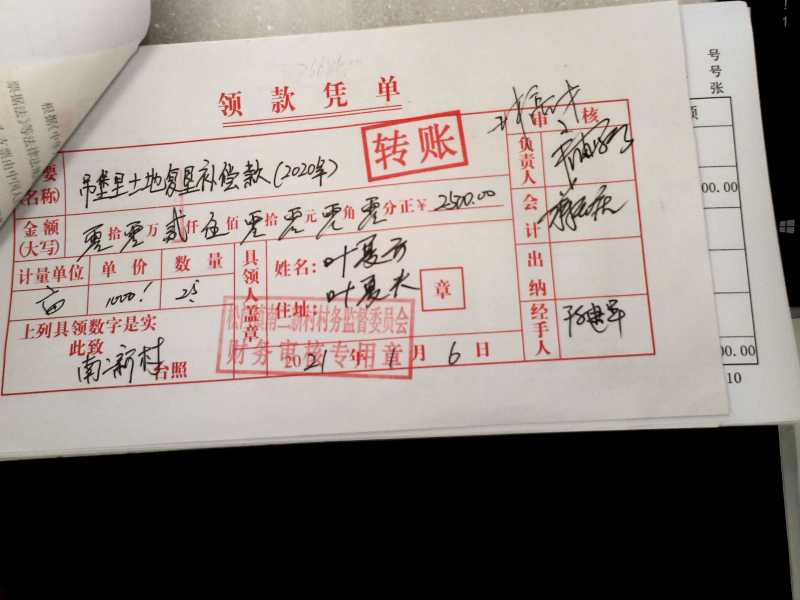 领款凭单
转账
审核
要
(名称)
吊堡垦土地复垦补偿款(2020年)
负责人
金额
(大写)
零拾零万贰仟伍佰零拾零元零角零分正¥2500.00
会计
计量单位 单价 数量
亩 1000/ 2.5
具领人盖章
姓名:叶夏
叶夏
住址:
章
出纳
上列具领数字是实
此致
南二新村台照
镇南二新村村务监督委员会
财务审核专用章
2021年1月6日
经手人
根据《中
票据法》等法律
号
号
张
00.00
00.00
10